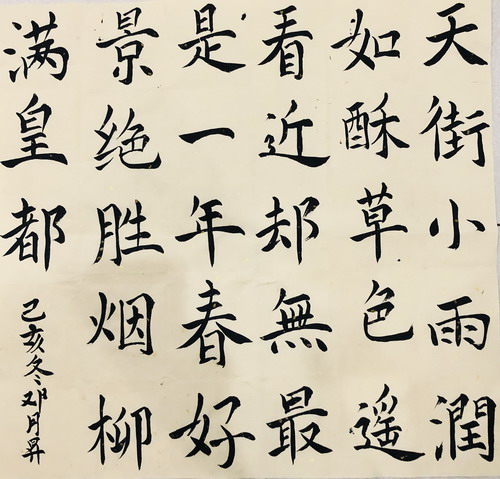 天街小雨潤
如酥草色遥
看近却無最
是一年春好
景绝胜烟柳
满皇都
己亥冬邓月昇